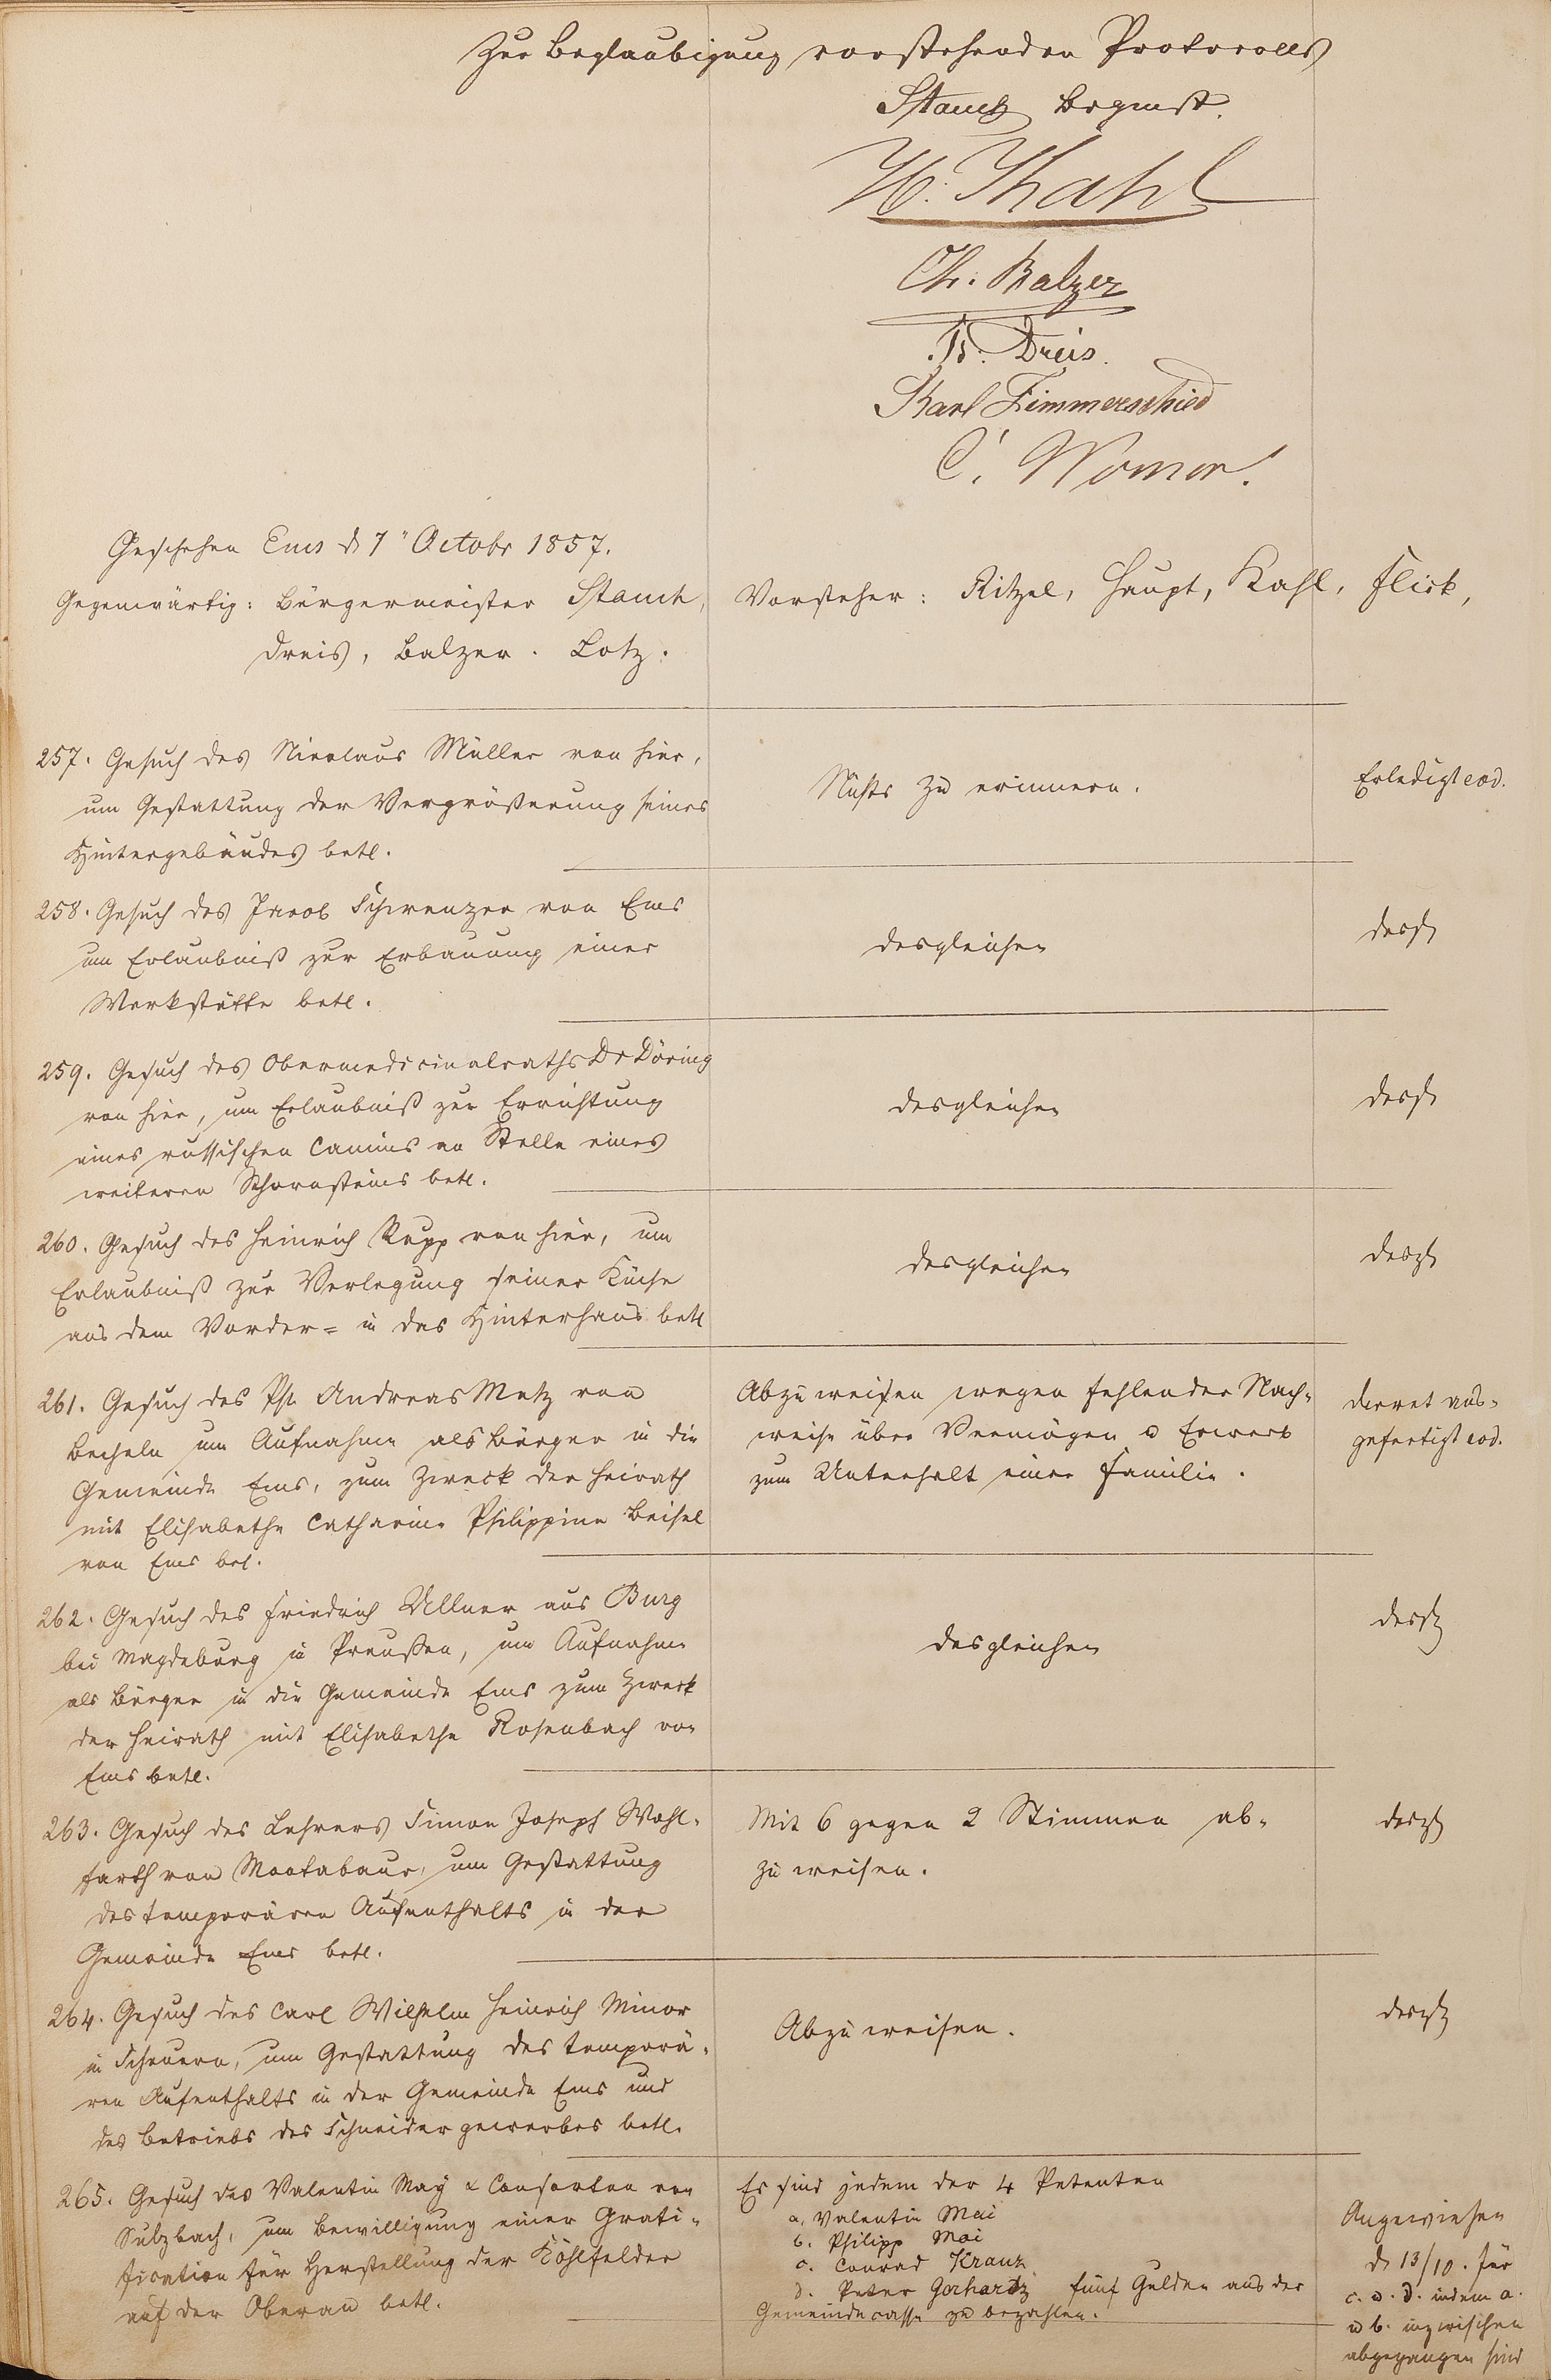 Zur Beglaubigung vorstehenden Protocolls
Stauch Bürgermst.
H. Kahl
Ch. Balzer
Dreis.
Karl Zimmerschied
C.
Geschehen Ems d 7" Octobr 1857.
Gegenwärtig: Bürgermeister Stauch, Vorsteher: Ritzel, Haupt, Kahl, Flick,
Dreis, Balzer. Lotz.
257. Gesuch des Nicolaus Müller von hier,
um Gestattung der Vergrößerung seines
Hintergebäudes betl.
Nichts zu erinnern.
Erledigt eod.
258. Gesuch des Jacob Schwenzer von Ems
um Erlaubniß zur Erbauung einer
Werkstätte betl.
desgleichen
desgl
259. Gesuch des Obermedicinalraths Dr Döring
von hier, um Erlaubniß zur Errichtung
eines russischen Camins an Stelle eines
weiteren Schornsteins betl.
desgleichen
desgl
260. Gesuch des Heinrich Rupp von hier, um
Erlaubniß zur Verlegung seiner Küche
aus dem Vorder= in das Hinterhaus betl
desgleichen
desgl
261. Gesuch des Ph. Andreas Metz von
Becheln um Aufnahme als Bürger in die
Gemeinde Ems, zum Zweck der Heirath
mit Elisabethe Catharine Philippine Beisel
von Ems bel.
Abzuweisen wegen fehlender Nach-
weise über Vermögen u Erwerb
zum Unterhalt einer Familie.
Decret aus-
gefertigt eod.
262. Gesuch des Friedrich Ullner aus Burg
bei Magdeburg in Preußen, um Aufnahme
als Bürger in die Gemeinde Ems zum Zweck
der Heirath mit Elisabethe Rosenbach von
Ems betl.
desgleichen
desgl
263. Gesuch des Lehrers Simon Joseph Wohl-
farth von Montabaur, um Gestattung
des temporären Aufenthalts in der
Gemeinde Ems betl.
Mit 6 gegen 2 Stimmen ab-
zuweisen.
desgl
264. Gesuch des Carl Wilhelm Heinrich Minor
in Scheuern, um Gestattung des temporä-
ren Aufenthalts in der Gemeinde Ems und
des Betriebs des Schneidergewerbes betl.
Abzuweisen.
desgl
265. Gesuch des Valentin May & Consorten von
Sulzbach, um Bewilligung einer Grati-
fication für Herstellung der Kohlfelder
auf der Oberau betl.
Es sind jedem der 4 Petenten
a. Valentin Mai
b. Philipp Mai
c. Conrad Kranz
d. Peter Gerhardz fünf Gulden aus der
Gemeindecasse zu bezahlen.
Angewiesen
d 13/10. für
c. u. d. indem a.
u b. inzwischen
abgegangen sind